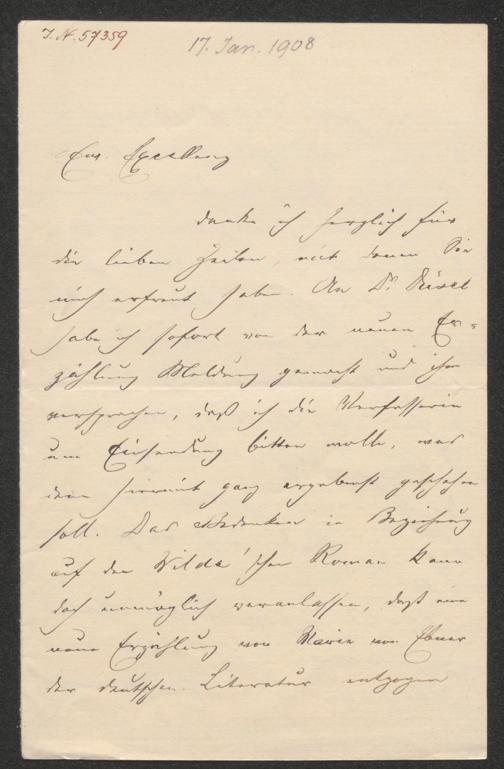 J. N. 57359
17. Jan. 1908
Ew. Excellenz
danke ich herzlich für
die lieben Zeilen, mit denen Sie
mich erfreut haben. An Dr. Düsel
habe ich sofort von der neuen Er-
zählung Meldung gemacht und ihm
versprochen, daß ich die Verfasserin
um Einsendung bitten wolle, was
denn hiermit ganz ergebenst geschehen
soll. Das Bedenken in Beziehung
auf den Wilda'schen Roman kann
doch unmöglich veranlassen, daß eine
neue Erzählung von Marie von Ebner
der deutschen Literatur entzogen